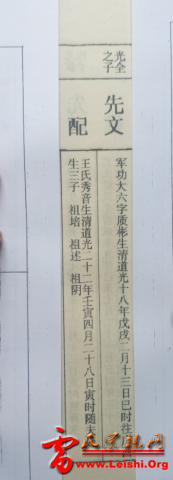 光全
之子
先文
军功大六字质彬生清道光十八年戊戌二月十三日巳时注
配
王氏秀音生清道光二十二年壬寅四月二十八日寅时随夫
生三子 祖培 祖述 祖阴
www.Leishi.Org